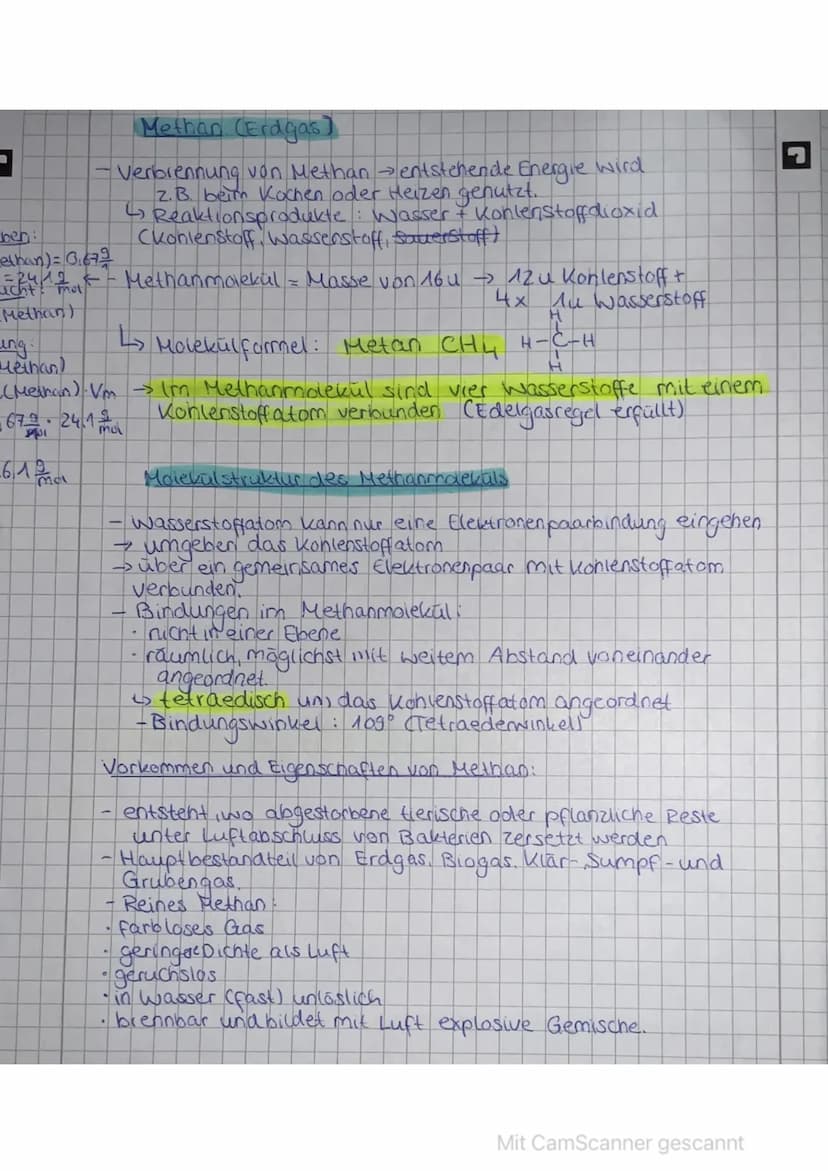 Methan (Erdgas)
- Verbrennung von Methan → entstehende Energie wird
z.B. beim Kochen oder Heizen genutzt.
↳ Reaktionsprodukte: Wasser + Kohlenstoffdioxid
(Kohlenstoff, Wasserstoff, Sauerstoff)
ben:
ethan) = 0,67 g
= 24,1 g/mol ←
icht:
Methan)
ung:
Methan)
(Methan) · Vm
67 g · 24,1 g/mol
6,1 g/mol
- Methanmolekül = Masse von 16u → 12u Kohlenstoff +
4x 1u Wasserstoff
↳ Molekülformel: Metan CH4
H
H-C-H
H
→ Im Methanmolekül sind vier Wasserstoffe mit einem
Kohlenstoffatom verbunden (Edelgasregel erfüllt)
Molekülstruktur des Methanmoleküls
- Wasserstoffatom kann nur eine Elektronenpaarbindung eingehen
→ umgeben das Kohlenstoffatom
→ über ein gemeinsames Elektronenpaar mit Kohlenstoffatom
verbunden.
- Bindungen im Methanmolekül:
· nicht in einer Ebene
· räumlich, möglichst mit weitem Abstand voneinander
angeordnet.
↳ tetraedisch um das Kohlenstoffatom angeordnet
- Bindungswinkel: 109° (Tetraederwinkel)
Vorkommen und Eigenschaften von Methan:
- entsteht, wo abgestorbene tierische oder pflanzliche Reste
unter Luftabschluss von Bakterien zersetzt werden
- Hauptbestandteil von Erdgas, Biogas, Klär-, Sumpf- und
Grubengas.
- Reines Methan:
· farbloses Gas
· geringere Dichte als Luft
· geruchslos
· in Wasser (fast) unlöslich
· brennbar und bildet mit Luft explosive Gemische.
Mit CamScanner gescannt